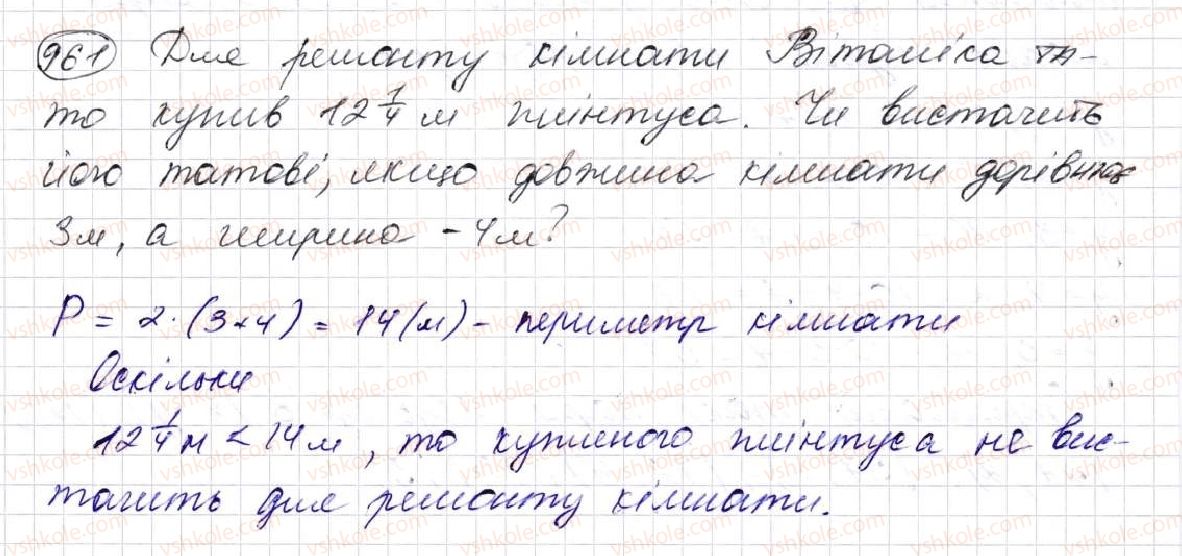 961 Для ремонту кімнати Віталіка та-
то купив 12 1/4 м плінтуса. Чи вистачить
його татові, якщо довжина кімнати дорівнює
3м, а ширина - 4м?
P = 2·(3+4) = 14(м) - периметр кімнати
Оскільки
12 1/4 м < 14м, то купленого плінтуса не вис-
тачить для ремонту кімнати.